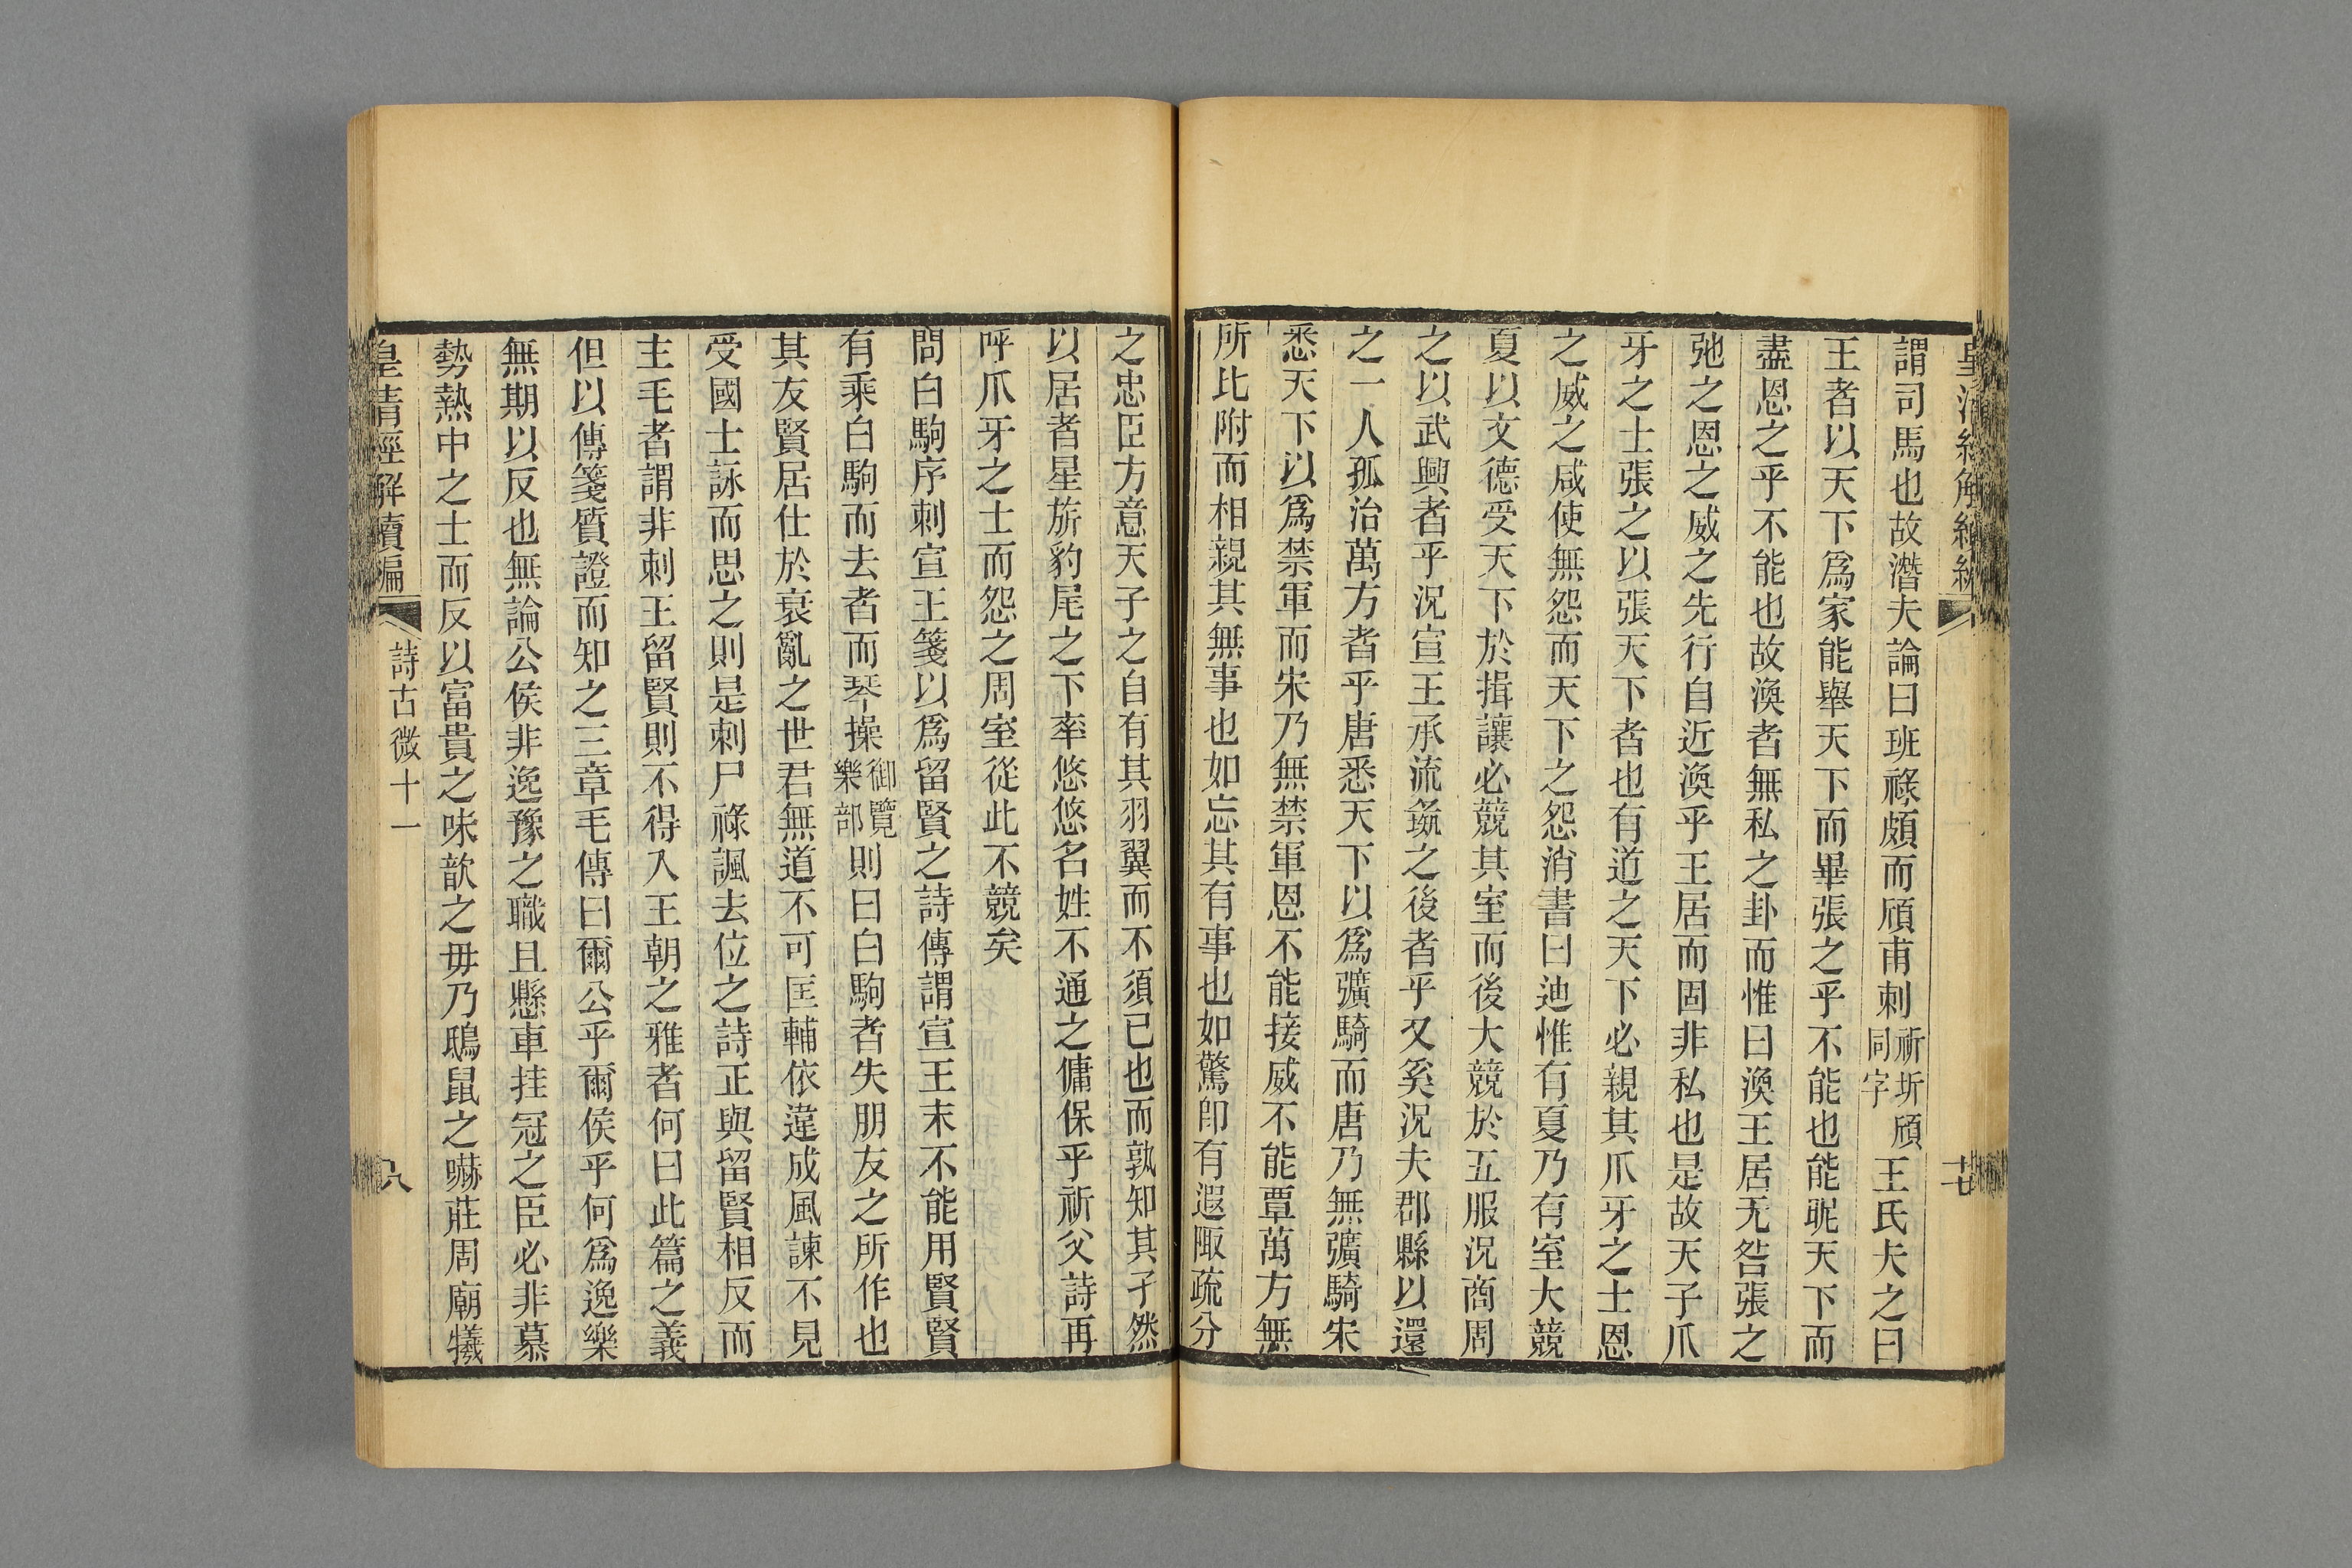 謂司馬也故潛夫論曰班祿頗而頎甫刺祈圻頎同字王氏夫之曰
王者以天下爲家能舉天下而畢張之乎不能也能昵天下而
盡恩之乎不能也故渙者無私之卦而惟曰渙王居无咎張之
弛之恩之威之先行自近渙乎王居而固非私也是故天子爪
牙之士張之以張天下者也有道之天下必親其爪牙之士恩
之威之咸使無怨而天下之怨消書曰迪惟有夏乃有室大競
夏以文德受天下於揖讓必競其室而後大競於五服況商周
之以武興者乎況宣王承流彘之後者乎又奚況夫郡縣以還
之一人孤治萬方者乎唐悉天下以爲彍騎而唐乃無彍騎宋
悉天下以爲禁軍而宋乃無禁軍恩不能接威不能覃萬方無
所比附而相親其無事也如忘其有事也如驚卽有遐陬疏分
之忠臣方意天子之自有其羽翼而不須已也而孰知其孑然
以居者星旂豹尾之下率悠悠名姓不通之傭保乎祈父詩再
呼爪牙之士而怨之周室從此不競矣
問白駒序刺宣王箋以爲留賢之詩傳謂宣王末不能用賢賢
有乘白駒而去者而琴操御覽樂部則曰白駒者失朋友之所作也
其友賢居仕於衰亂之世君無道不可匡輔依違成風諫不見
受國士詠而思之則是刺尸祿諷去位之詩正與留賢相反而
主毛者謂非刺王留賢則不得入王朝之雅者何曰此篇之義
但以傳箋質證而知之三章毛傳曰爾公乎爾侯乎何爲逸樂
無期以反也無論公侯非逸豫之職且懸車挂冠之臣必非慕
勢熱中之士而反以富貴之味歆之毋乃鴟鼠之嚇莊周廟犧
皇清經解續編
詩古微十一